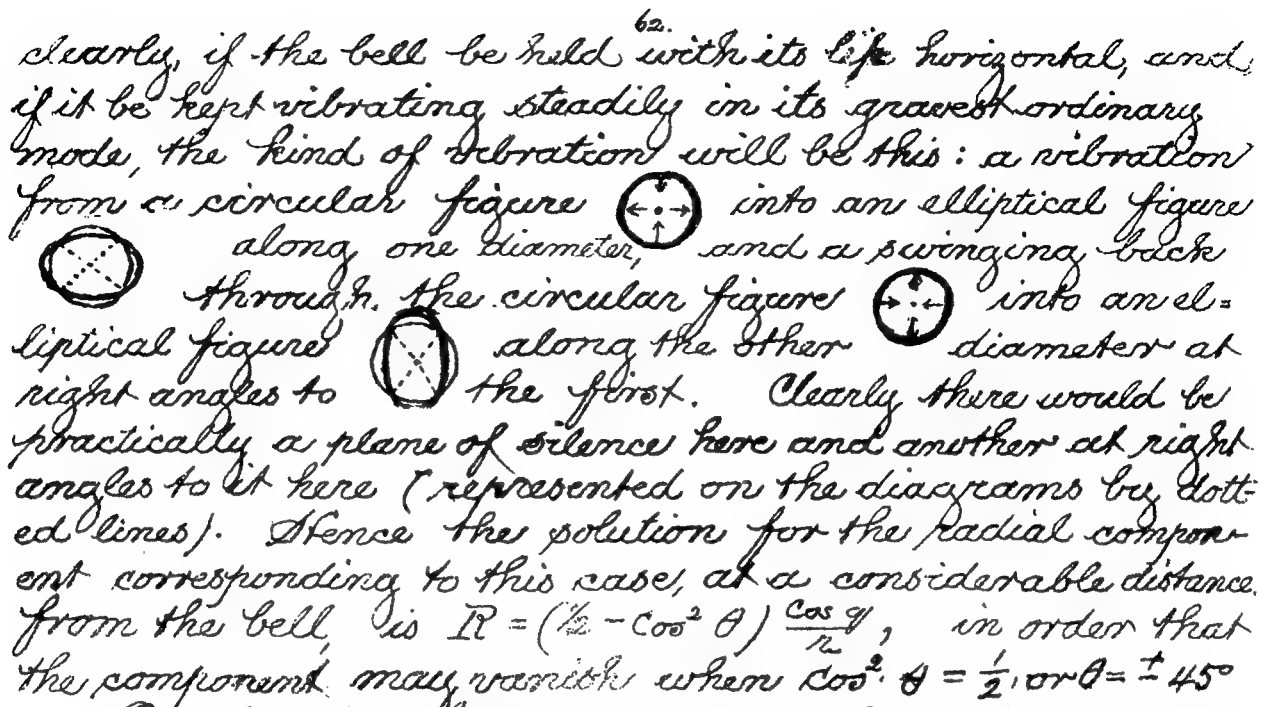 62.
clearly, if the bell be held with its lip horizontal, and,
if it be kept vibrating steadily in its gravest ordinary
mode, the kind of vibration will be this: a vibration
from a circular figure into an elliptical figure
along one diameter, and a swinging back
through the circular figure into an el=
liptical figure along the other diameter at
right angles to the first. Clearly there would be
practically a plane of silence here and another at right
angles to it here (represented on the diagrams by dott-
ed lines). Hence the solution for the radial compon-
ent corresponding to this case, at a considerable distance.
from the bell, is R = (½ - cos² θ) cos q/r, in order that
the component may vanish when cos² θ = 1/2, or θ = ± 45°